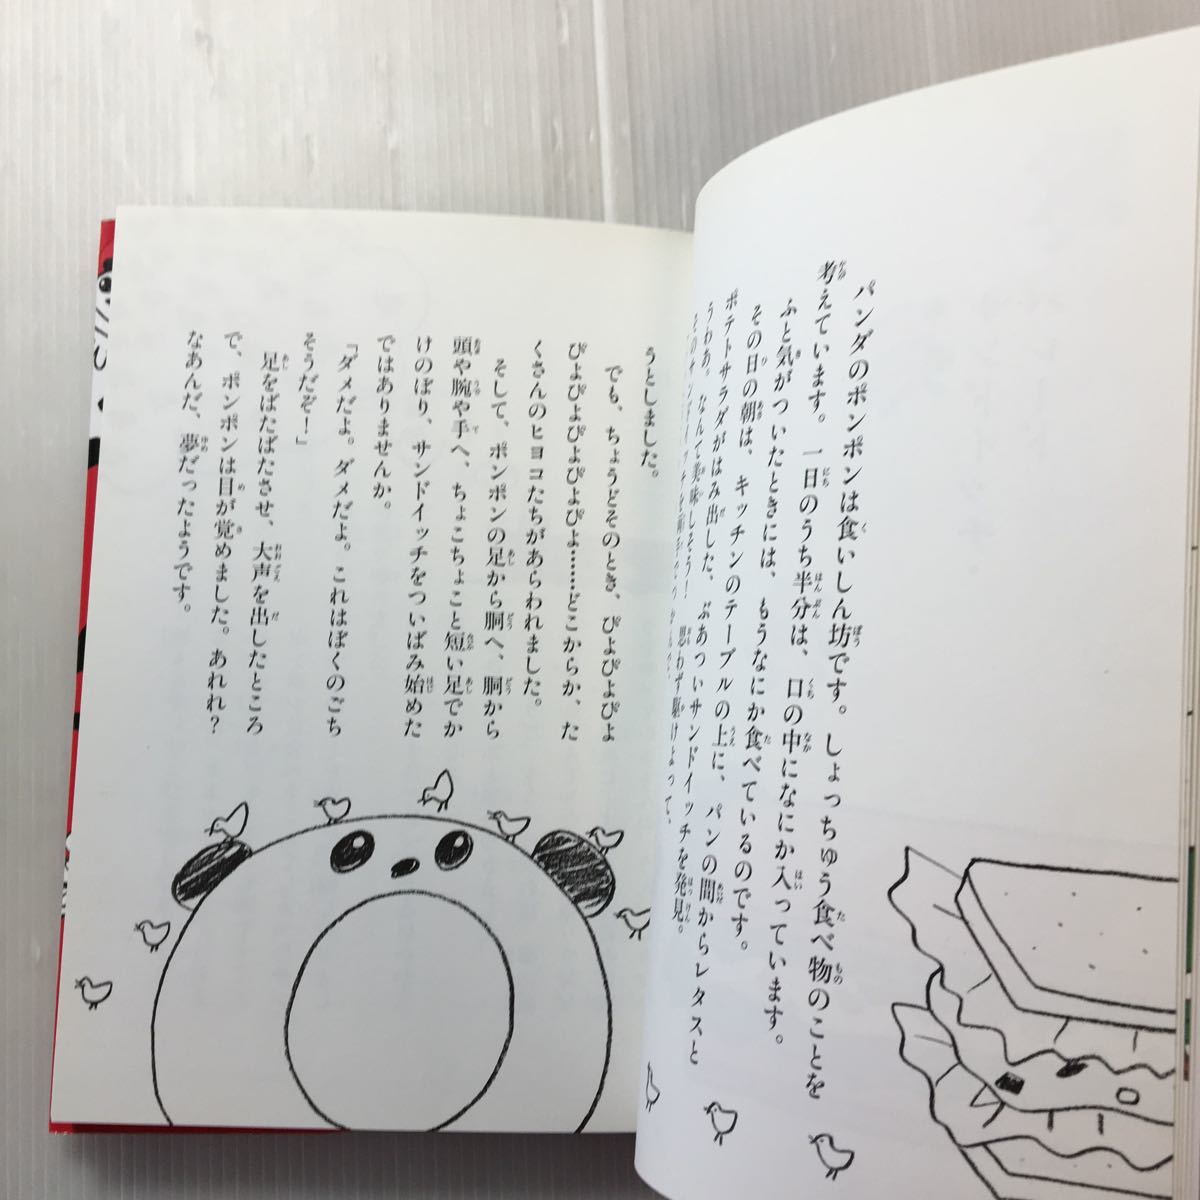 パンダのポンポンは食いしん坊です。しょっちゅう食べ物のことを
考えています。一日のうち半分は、口の中になにか入っています。
ふと気がついたときには、もうなにか食べているのです。
その日の朝は、キッチンのテーブルの上に、パンの間からレタスと
ポテトサラダがはみ出した、ぶあついサンドイッチを発見。
うわあ、なんて美味しそう！　思わず駆けよって、
そのサンドイッチを
うとしました。
でも、ちょうどそのとき、ぴよぴよぴよ
ぴよぴよぴよぴよぴよ……どこからか、た
くさんのヒヨコたちがあらわれました。
そして、ポンポンの足から胴へ、胴から
頭や腕や手へ、ちょこちょこと短い足でか
けのぼり、サンドイッチをついばみ始めた
ではありませんか。
「ダメだよ。ダメだよ。これはぼくのごち
そうだぞ！」
足をばたばたさせ、大声を出したところ
で、ポンポンは目が覚めました。あれれ？
なあんだ、夢だったようです。